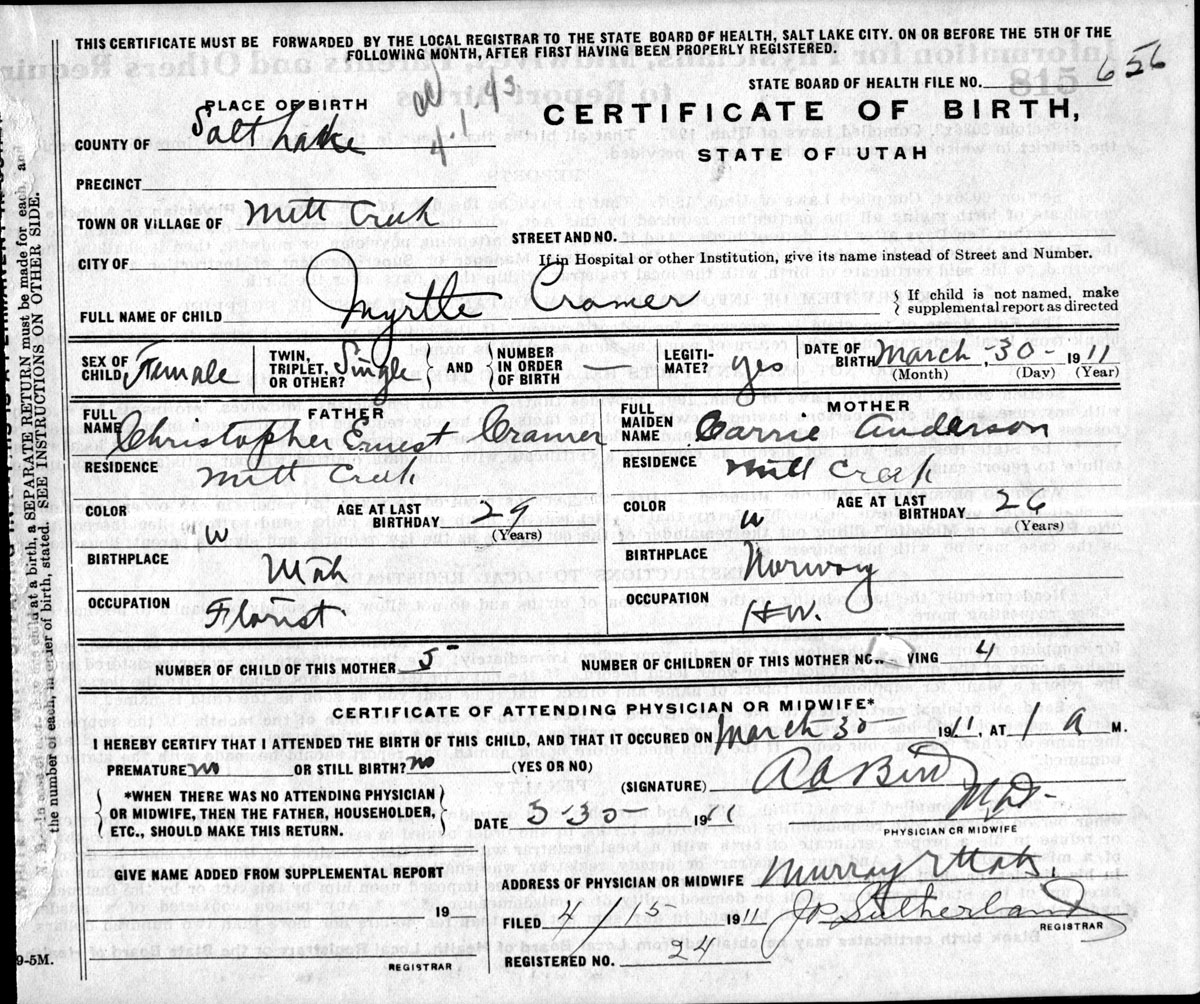 THIS CERTIFICATE MUST BE FORWARDED BY THE LOCAL REGISTRAR TO THE STATE BOARD OF HEALTH, SALT LAKE CITY. ON OR BEFORE THE 5TH OF THE
FOLLOWING MONTH, AFTER FIRST HAVING BEEN PROPERLY REGISTERED.
STATE BOARD OF HEALTH FILE NO. 656
815
PLACE OF BIRTH
CERTIFICATE OF BIRTH,
COUNTY OF Salt Lake
STATE OF UTAH
PRECINCT
TOWN OR VILLAGE OF Mill Creek
STREET AND NO.
CITY OF
If in Hospital or other Institution, give its name instead of Street and Number.
FULL NAME OF CHILD Myrtle Cramer { If child is not named, make
supplemental report as directed
SEX OF CHILD Female TWIN, TRIPLET, OR OTHER? Single { AND } NUMBER IN ORDER OF BIRTH LEGITI-MATE? yes DATE OF BIRTH March - 30 - 1911
(Month) (Day) (Year)
FATHER
FULL NAME Christopher Ernest Cramer
RESIDENCE
Mill Creek
COLOR W AGE AT LAST BIRTHDAY 29
(Years)
BIRTHPLACE
Utah
OCCUPATION
Florist
MOTHER
FULL MAIDEN NAME Carrie Anderson
RESIDENCE
Mill Creek
COLOR W AGE AT LAST BIRTHDAY 26
(Years)
BIRTHPLACE
Norway
OCCUPATION
H W.
NUMBER OF CHILD OF THIS MOTHER 5 NUMBER OF CHILDREN OF THIS MOTHER VING 4
CERTIFICATE OF ATTENDING PHYSICIAN OR MIDWIFE*
I HEREBY CERTIFY THAT I ATTENDED THE BIRTH OF THIS CHILD, AND THAT IT OCCURED ON March 30 1911, AT 1 a M.
PREMATURE no OR STILL BIRTH? no (YES OR NO)
(SIGNATURE) Bird
M.D.
PHYSICIAN OR MIDWIFE
{ *WHEN THERE WAS NO ATTENDING PHYSICIAN
OR MIDWIFE, THEN THE FATHER, HOUSEHOLDER,
ETC., SHOULD MAKE THIS RETURN. }
DATE 3-30 191
GIVE NAME ADDED FROM SUPPLEMENTAL REPORT
19
REGISTRAR
ADDRESS OF PHYSICIAN OR MIDWIFE Murray Utah
FILED 4/1 1911 Sutherland
REGISTRAR
REGISTERED NO. 24
9-5M.
child at a birth, a SEPARATE RETURN must be made for each, and
the number of each, in order of birth, stated. SEE INSTRUCTIONS ON OTHER SIDE.